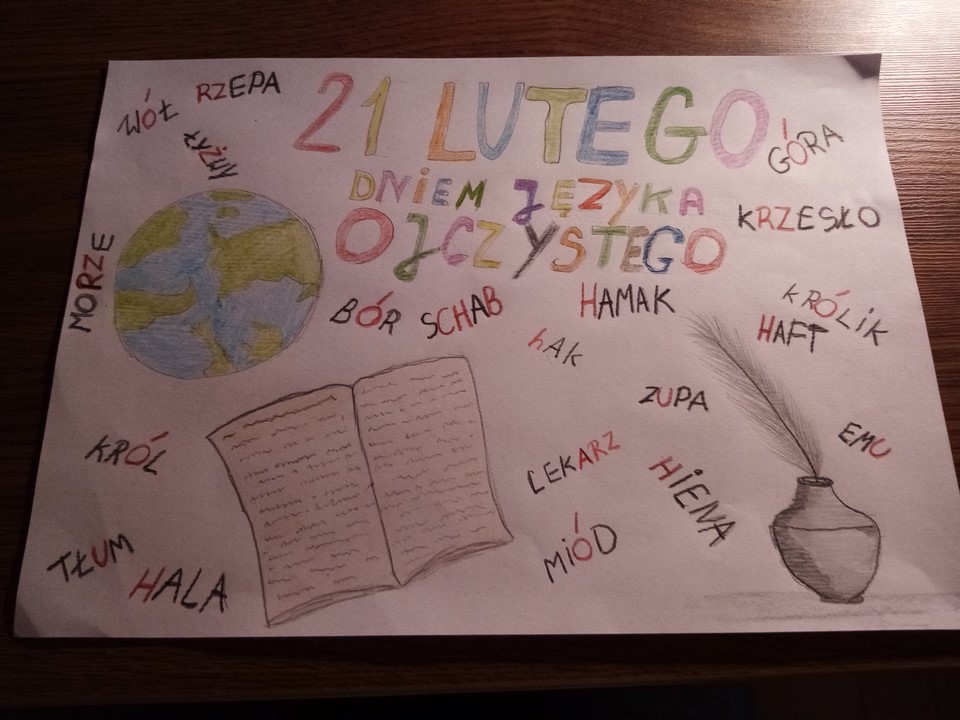 21 LUTEGO
DNIEM JĘZYKA
OJCZYSTEGO
WÓŁ
RZEPA
ŁYŻWY
GÓRA
KRZESŁO
MORZE
BÓR
SCHAB
HAMAK
KRÓLIK
HAFT
hAK
ZUPA
EMU
KRÓL
LEKARZ
HIENA
MIÓD
TŁUM
HALA